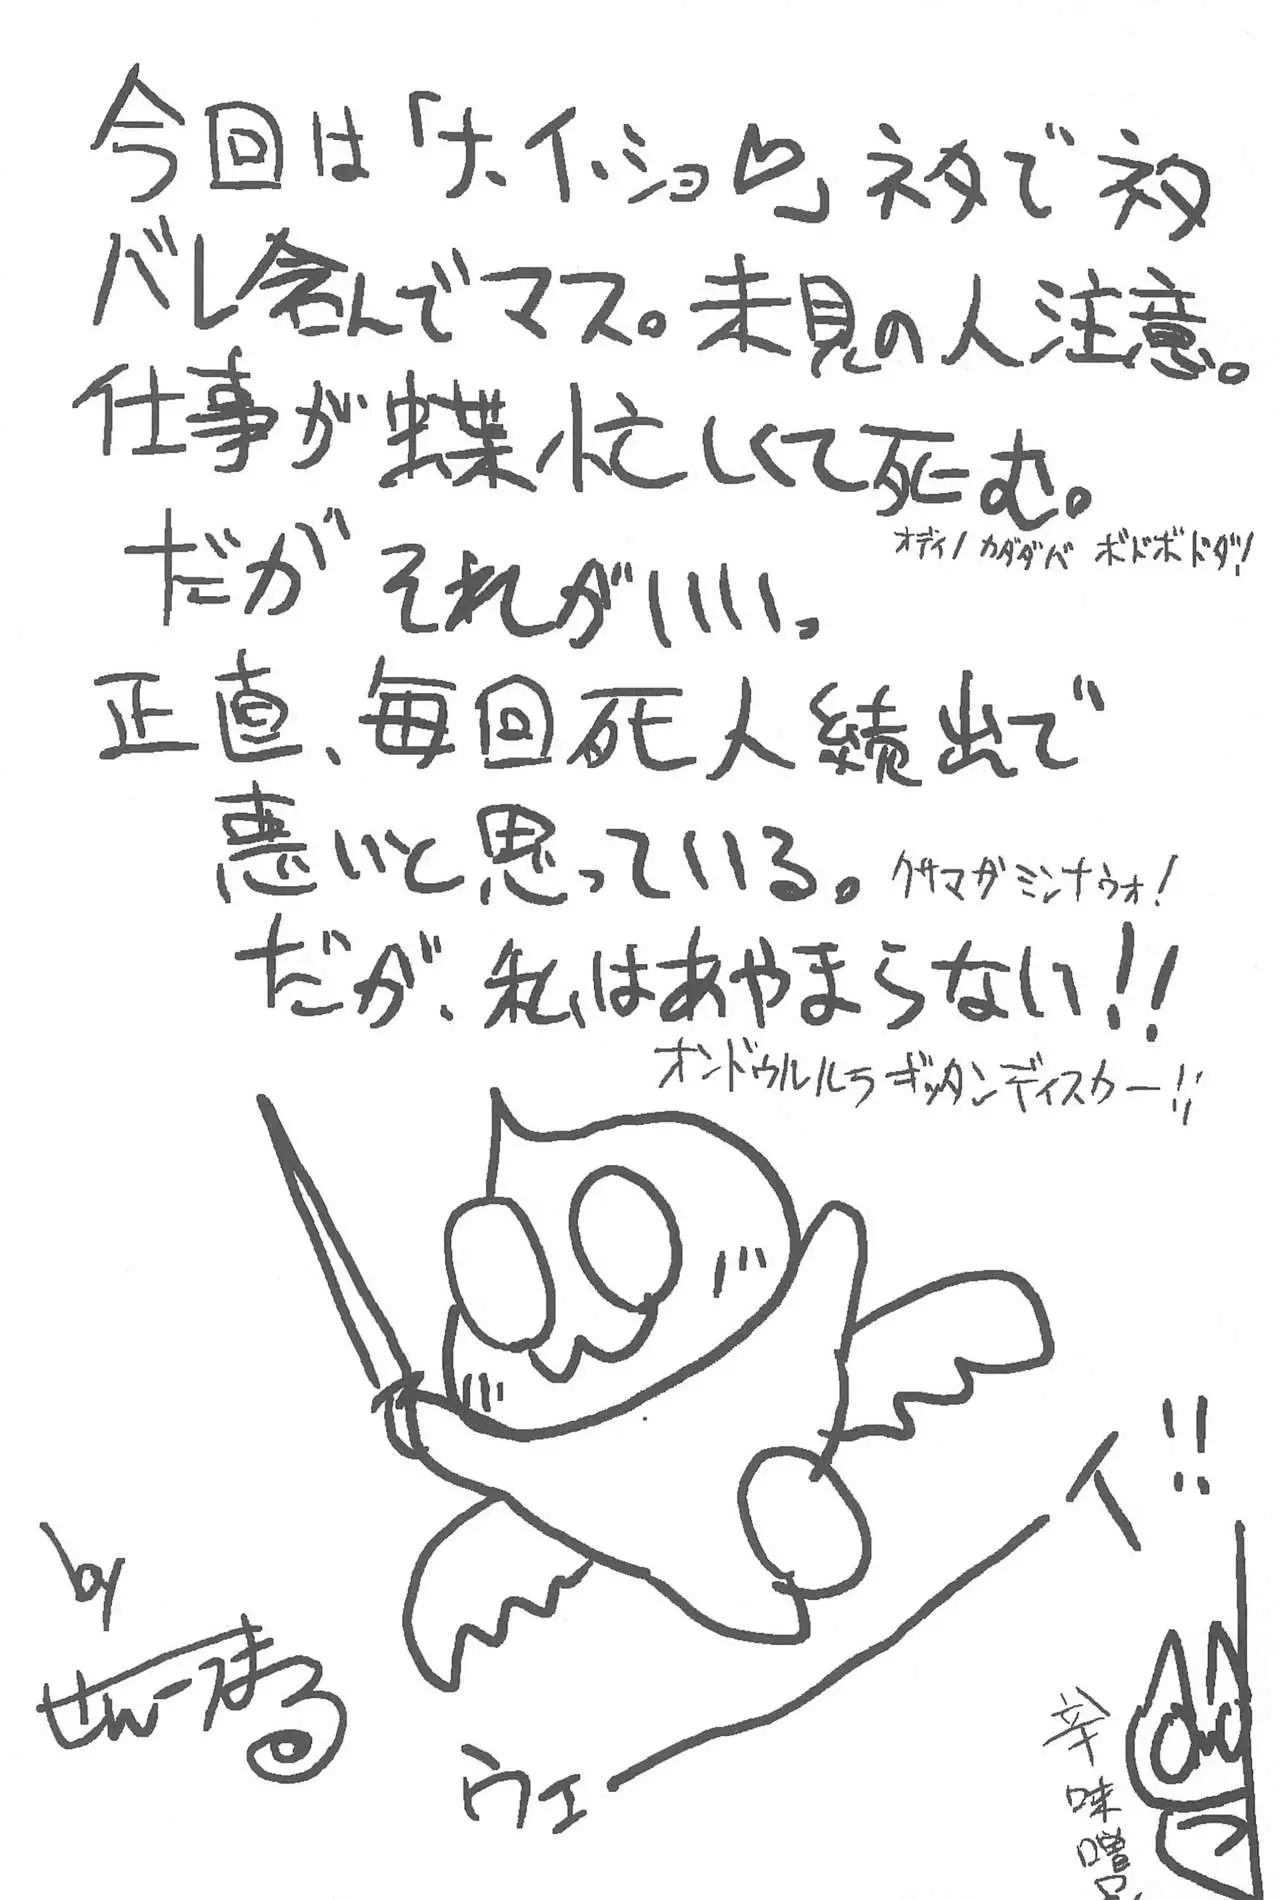 今回は「ナ・イ・ショ♡」ネタでネタ
バレ含んでマス。未見の人注意。
仕事が蝶忙しくて死む。
オディノ カダダバ ボドボドダ!
だがそれがいい。
正直、毎回死人続出で
悪いと思っている。
クサマガ ミンナウォ!
だが、私はあやまらない!!
オンドゥルルラギッタンディスカー!!
ウェーイ!!
by
せんーつまる
辛味噌